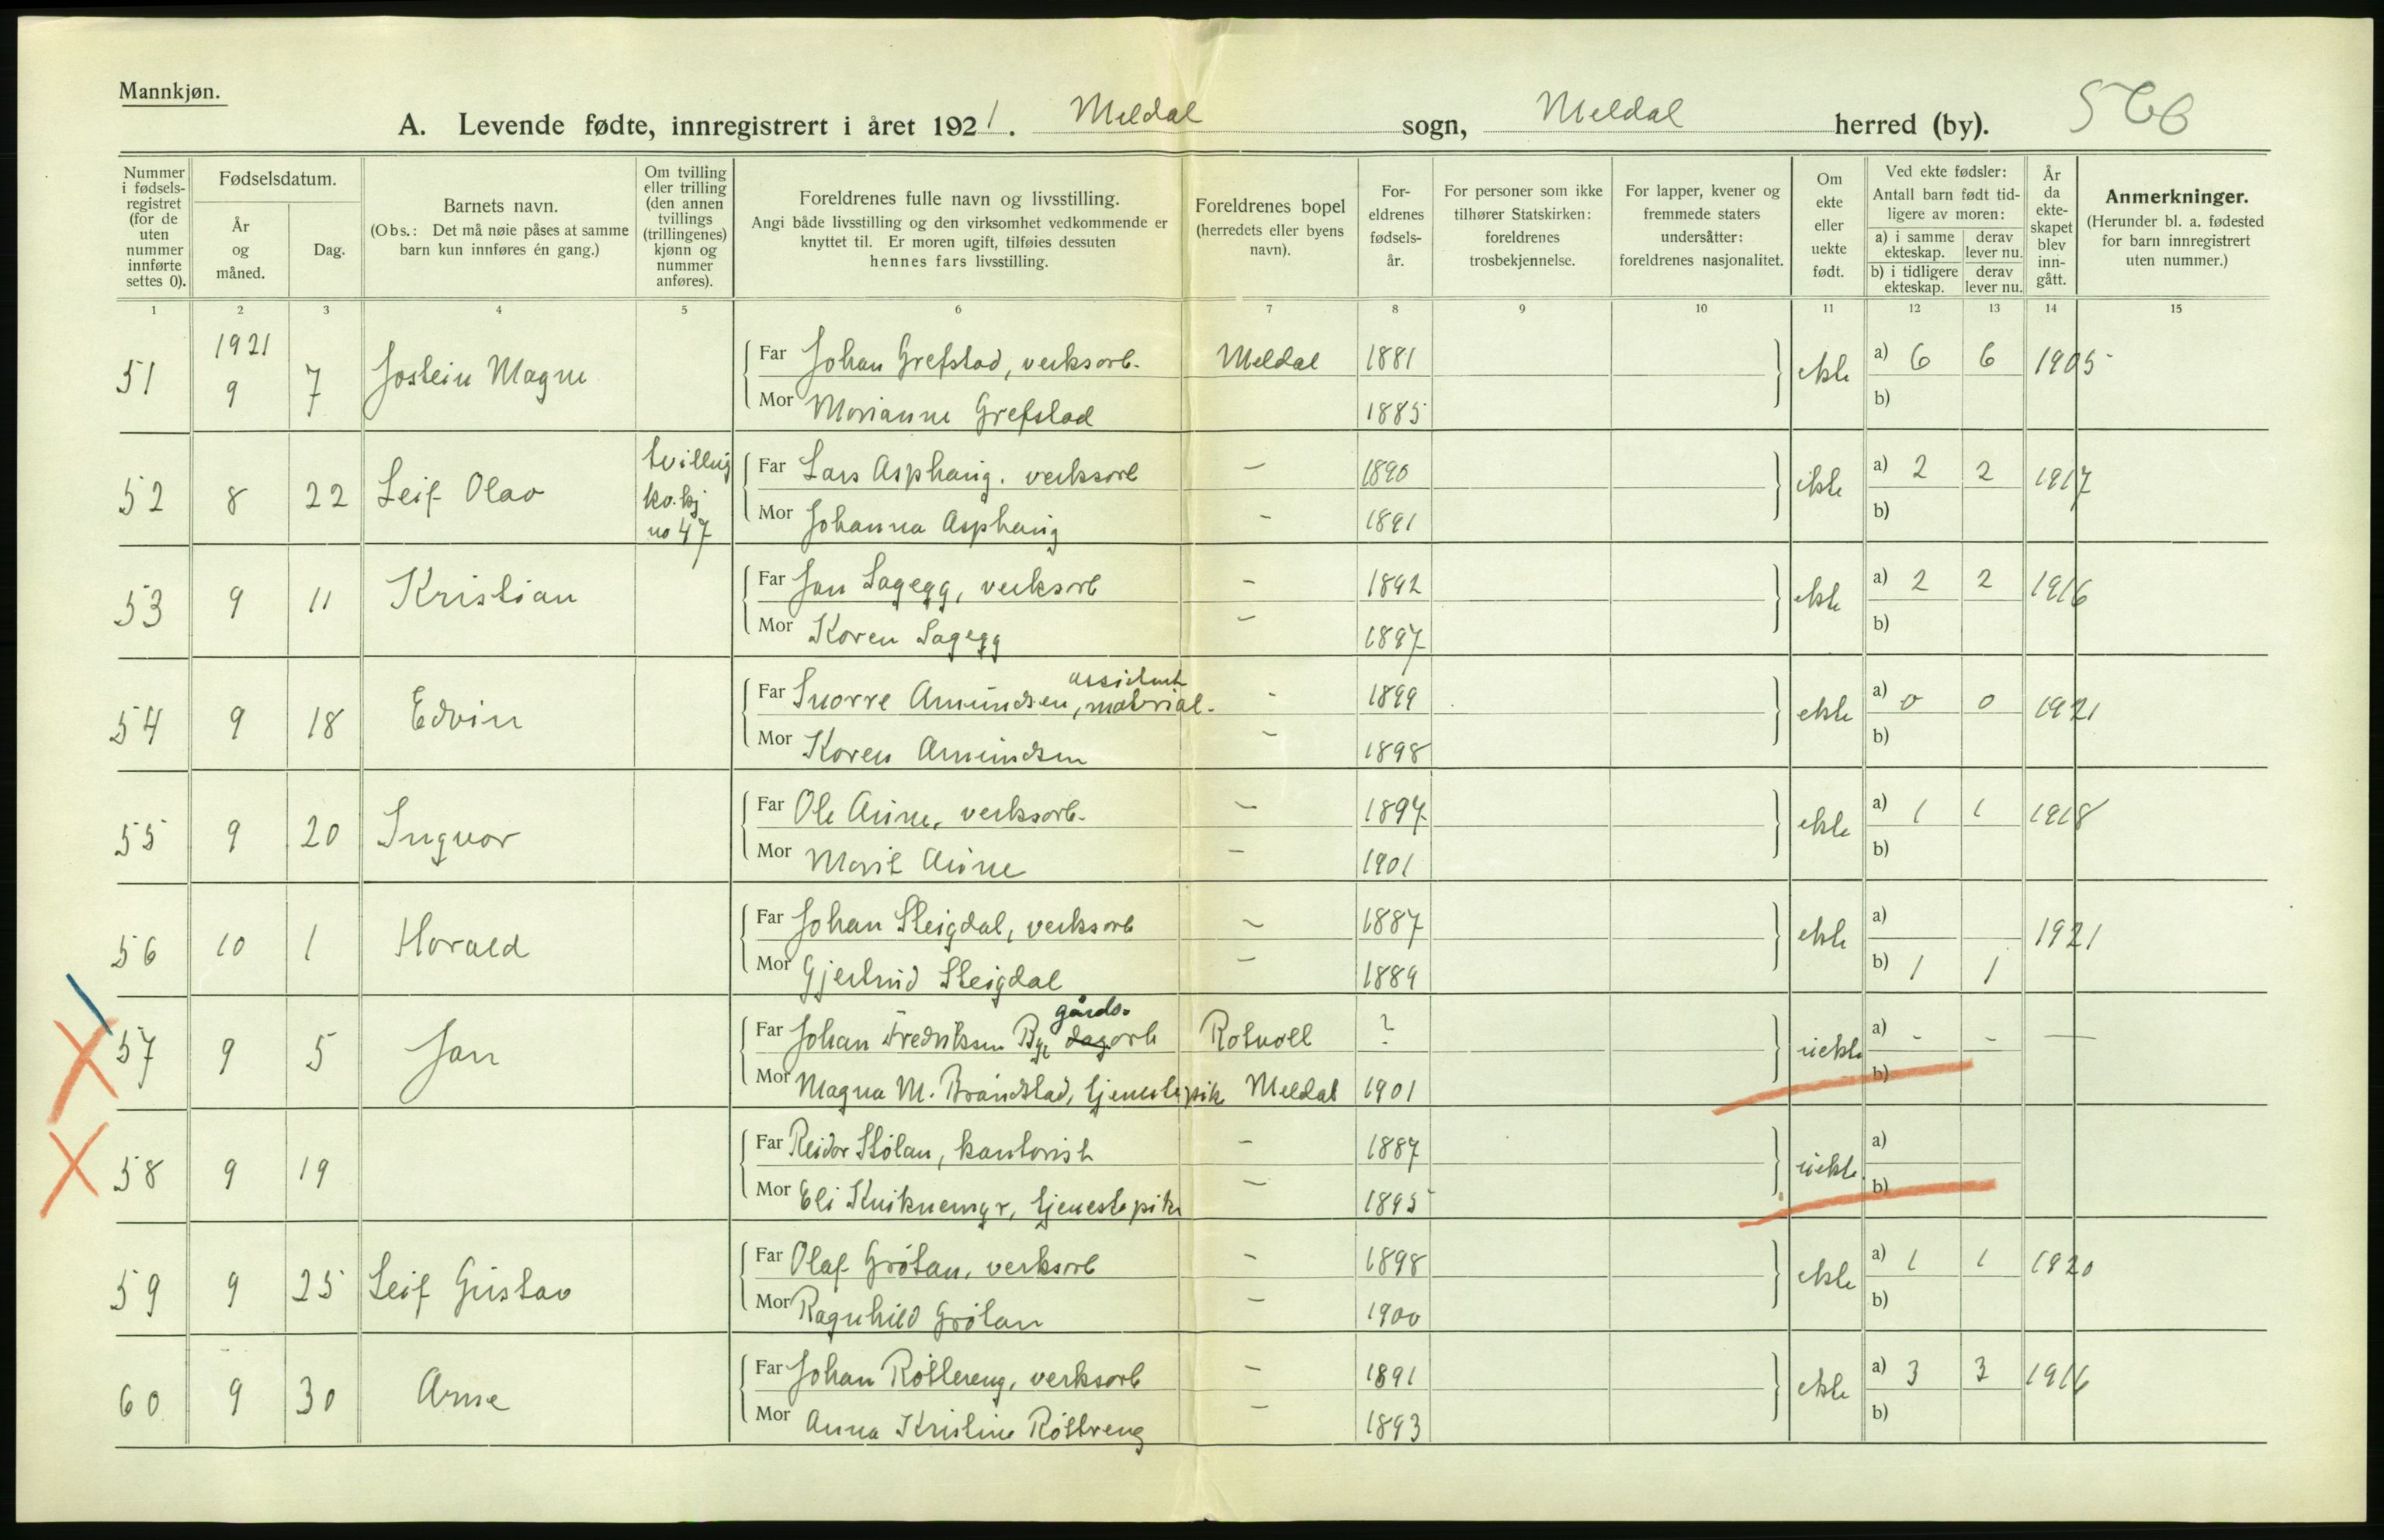 Mannkjøn.
A. Levende fødte, innregistrert i året 1921. Meldal sogn, Meldal herred (by). 566
Nummer i fødsels-registret (for de uten nummer innførte settes 0).
Fødselsdatum.
År og måned.
Dag.
Barnets navn.
(Obs.: Det må nøie påses at samme barn kun innføres én gang.)
Om tvilling eller trilling (den annen tvillings (trillingenes) kjønn og nummer anføres).
Foreldrenes fulle navn og livsstilling.
Angi både livsstilling og den virksomhet vedkommende er knyttet til. Er moren ugift, tilføies dessuten hennes fars livsstilling.
Foreldrenes bopel (herredets eller byens navn).
For-eldrenes fødsels-år.
For personer som ikke tilhører Statskirken: foreldrenes trosbekjennelse.
For lapper, kvener og fremmede staters undersåtter: foreldrenes nasjonalitet.
Om ekte eller uekte født.
Ved ekte fødsler:
Antall barn født tid-ligere av moren:
a) i samme ekteskap. derav lever nu.
b) i tidligere ekteskap. derav lever nu.
År da ekte-skapet blev inn-gått.
Anmerkninger.
(Herunder bl. a. fødested for barn innregistrert uten nummer.)
1 2 3 4 5 6 7 8 9 10 11 12 13 14 15
51 1921 9 7 Jostein Magne Far Johan Grefstad, verksarb. Meldal 1881 ekte a) 6 6 1905
Mor Marianne Grefstad 1885 b)
52 8 22 Leif Olav tvilling kv.kj no 47 Far Lars Asphaug. verksarb – 1890 ekte a) 2 2 1917
Mor Johanna Asphaug – 1891 b)
53 9 11 Kristian Far Jan Sagegg, verksarb – 1892 ekte a) 2 2 1916
Mor Karen Sagegg – 1897 b)
54 9 18 Edvin Far Snorre Amundsen, material. assistent - 1899 ekte a) 0 0 1921
Mor Karen Amundsen – 1898 b)
55 9 20 Ingvar Far Ole Aune, verksarb. – 1897 ekte a) 1 1 1918
Mor Marit Aune – 1901 b)
56 10 1 Harald Far Johan Steigdal, verksarb – 1887 ekte a) 1921
Mor Gjertrud Steigdal – 1889 b) 1 1
57 9 5 Jan Far Johan Fredriksen Bye dagarb gårds. Rotvoll ? uekte a) - - —
Mor Magna M. Brandstad, tjenestepik Meldal 1901 b)
58 9 19 Far Reidar Stølan, kontorist – 1887 uekte a)
Mor Eli tjenestepike – 1895 b)
59 9 25 Leif Gustav Far Olaf Grøtan, verksarb – 1898 ekte a) 1 1 1920
Mor Ragnhild Grøtan – 1900 b)
60 9 30 Arne Far Johan Røttereng, verksarb – 1891 ekte a) 3 3 1916
Mor Anna Kristine Røttreng – 1893 b)